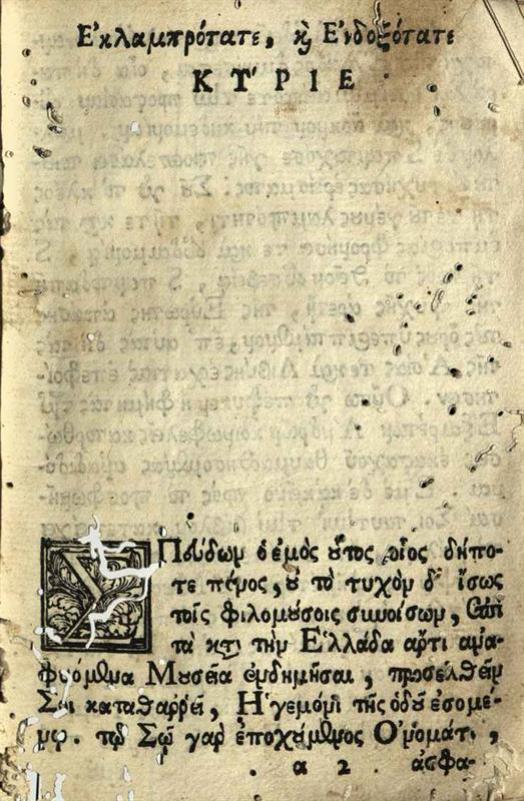 Ἐκλαμπρότατε, ϗ Ἐνδοξότατε
ΚΥΡΙΕ
ΣΠεύδων ὁ ἐμὸς ȣ̓͂τος οἷος δήπο-
τε πόνος, ȣ̓ τὸ τυχὸν δ' ἴσως
τοῖς φιλομȣ́σοις συνοίσων, ἐπὶ
τὰ κτ τὴν Ἑλλάδα ἄρτι ἀνα-
φυόμενα Μȣσεῖα ἐνδημῆσαι, προσελθεῖν
Σοι καταθαῤῥεῖ, Ἡγεμόνι τῆς ὁδȣ͂ ἐσομέ-
νῳ. τῷ Σῷ γὰρ ἐποχȣ́μενος Ὀνόματι,
α 2 ἀσφα-